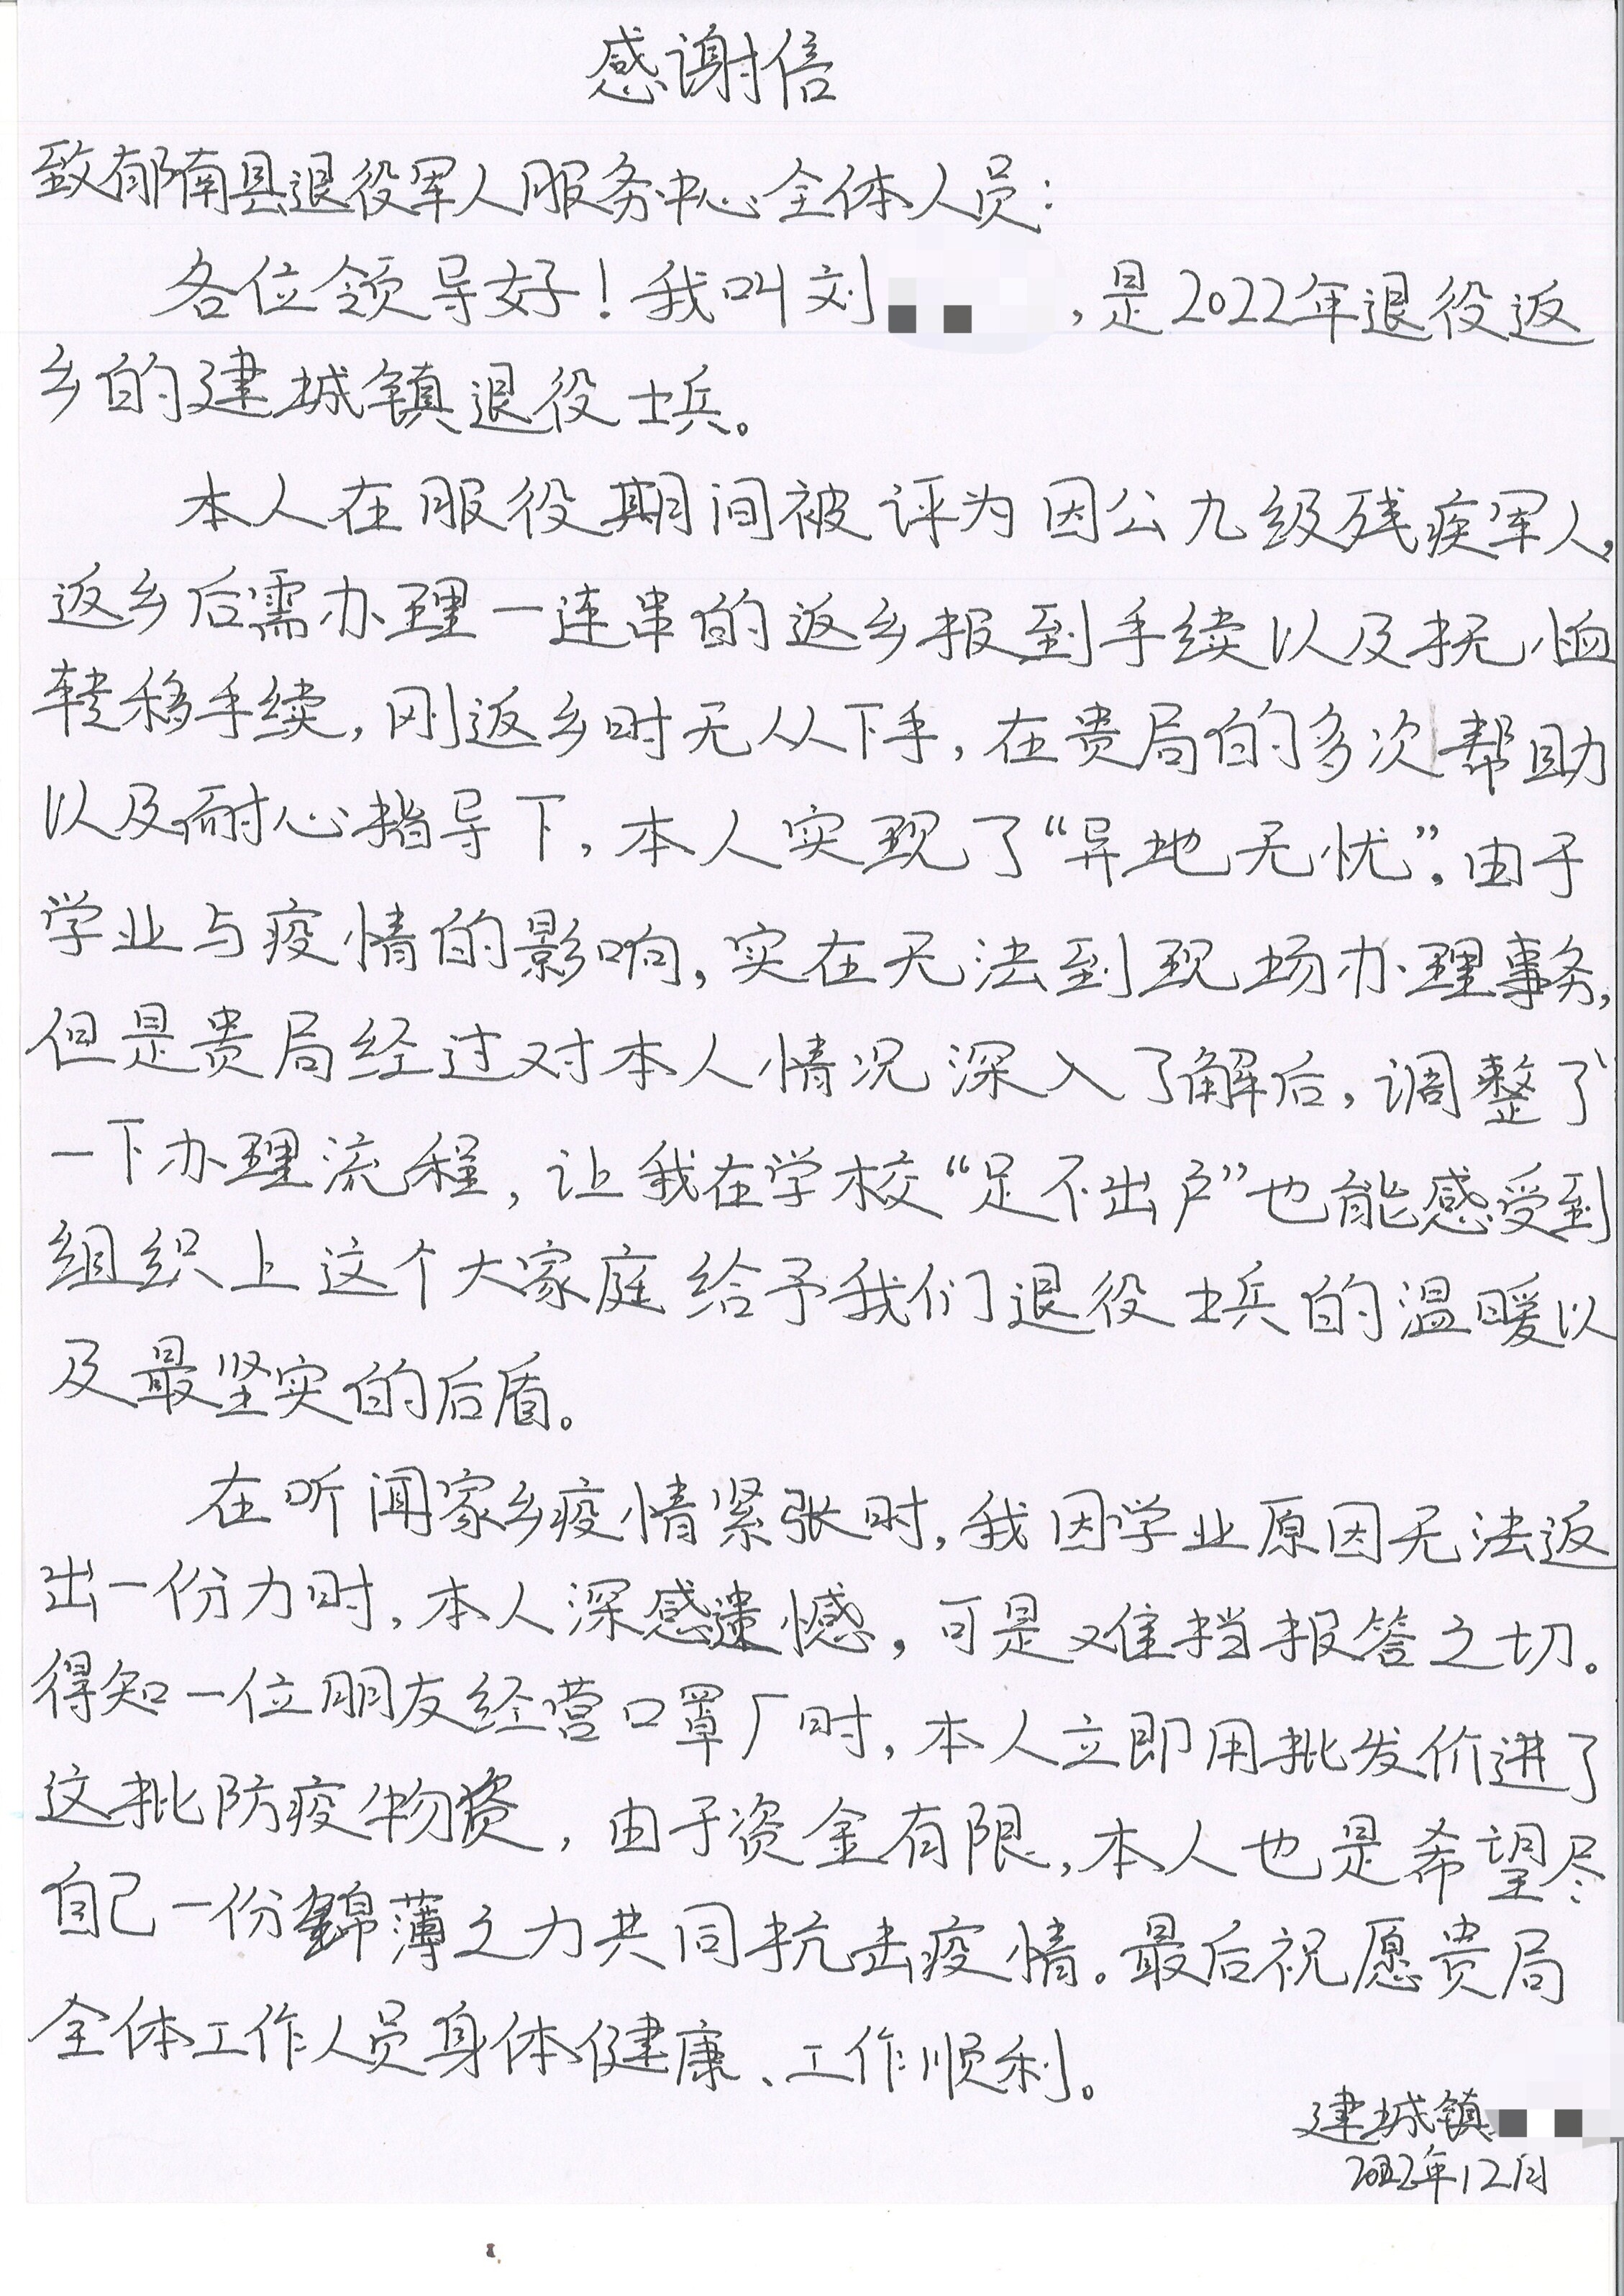 感谢信
致郁南县退役军人服务中心全体人员：
各位领导好！我叫刘，是2022年退役返
乡的建城镇退役士兵。
本人在服役期间被评为因公九级残疾军人，
返乡后需办理一连串的返乡报到手续以及抚恤
转移手续，刚返乡时无从下手，在贵局的多次帮助
以及耐心指导下，本人实现了“异地无忧”。由于
学业与疫情的影响，实在无法到现场办理事务，
但是贵局经过对本人情况深入了解后，调整了
一下办理流程，让我在学校“足不出户”也能感受到
组织上这个大家庭给予我们退役士兵的温暖以
及最坚实的后盾。
在听闻家乡疫情紧张时，我因学业原因无法返
出一份力时，本人深感遗憾，可是又难挡报答之切。
得知一位朋友经营口罩厂时，本人立即用批发价进了
这批防疫物资，由于资金有限，本人也是希望尽
自己一份锦薄之力共同抗击疫情。最后祝愿贵局
全体工作人员身体健康、工作顺利。
建城镇
2022年12月